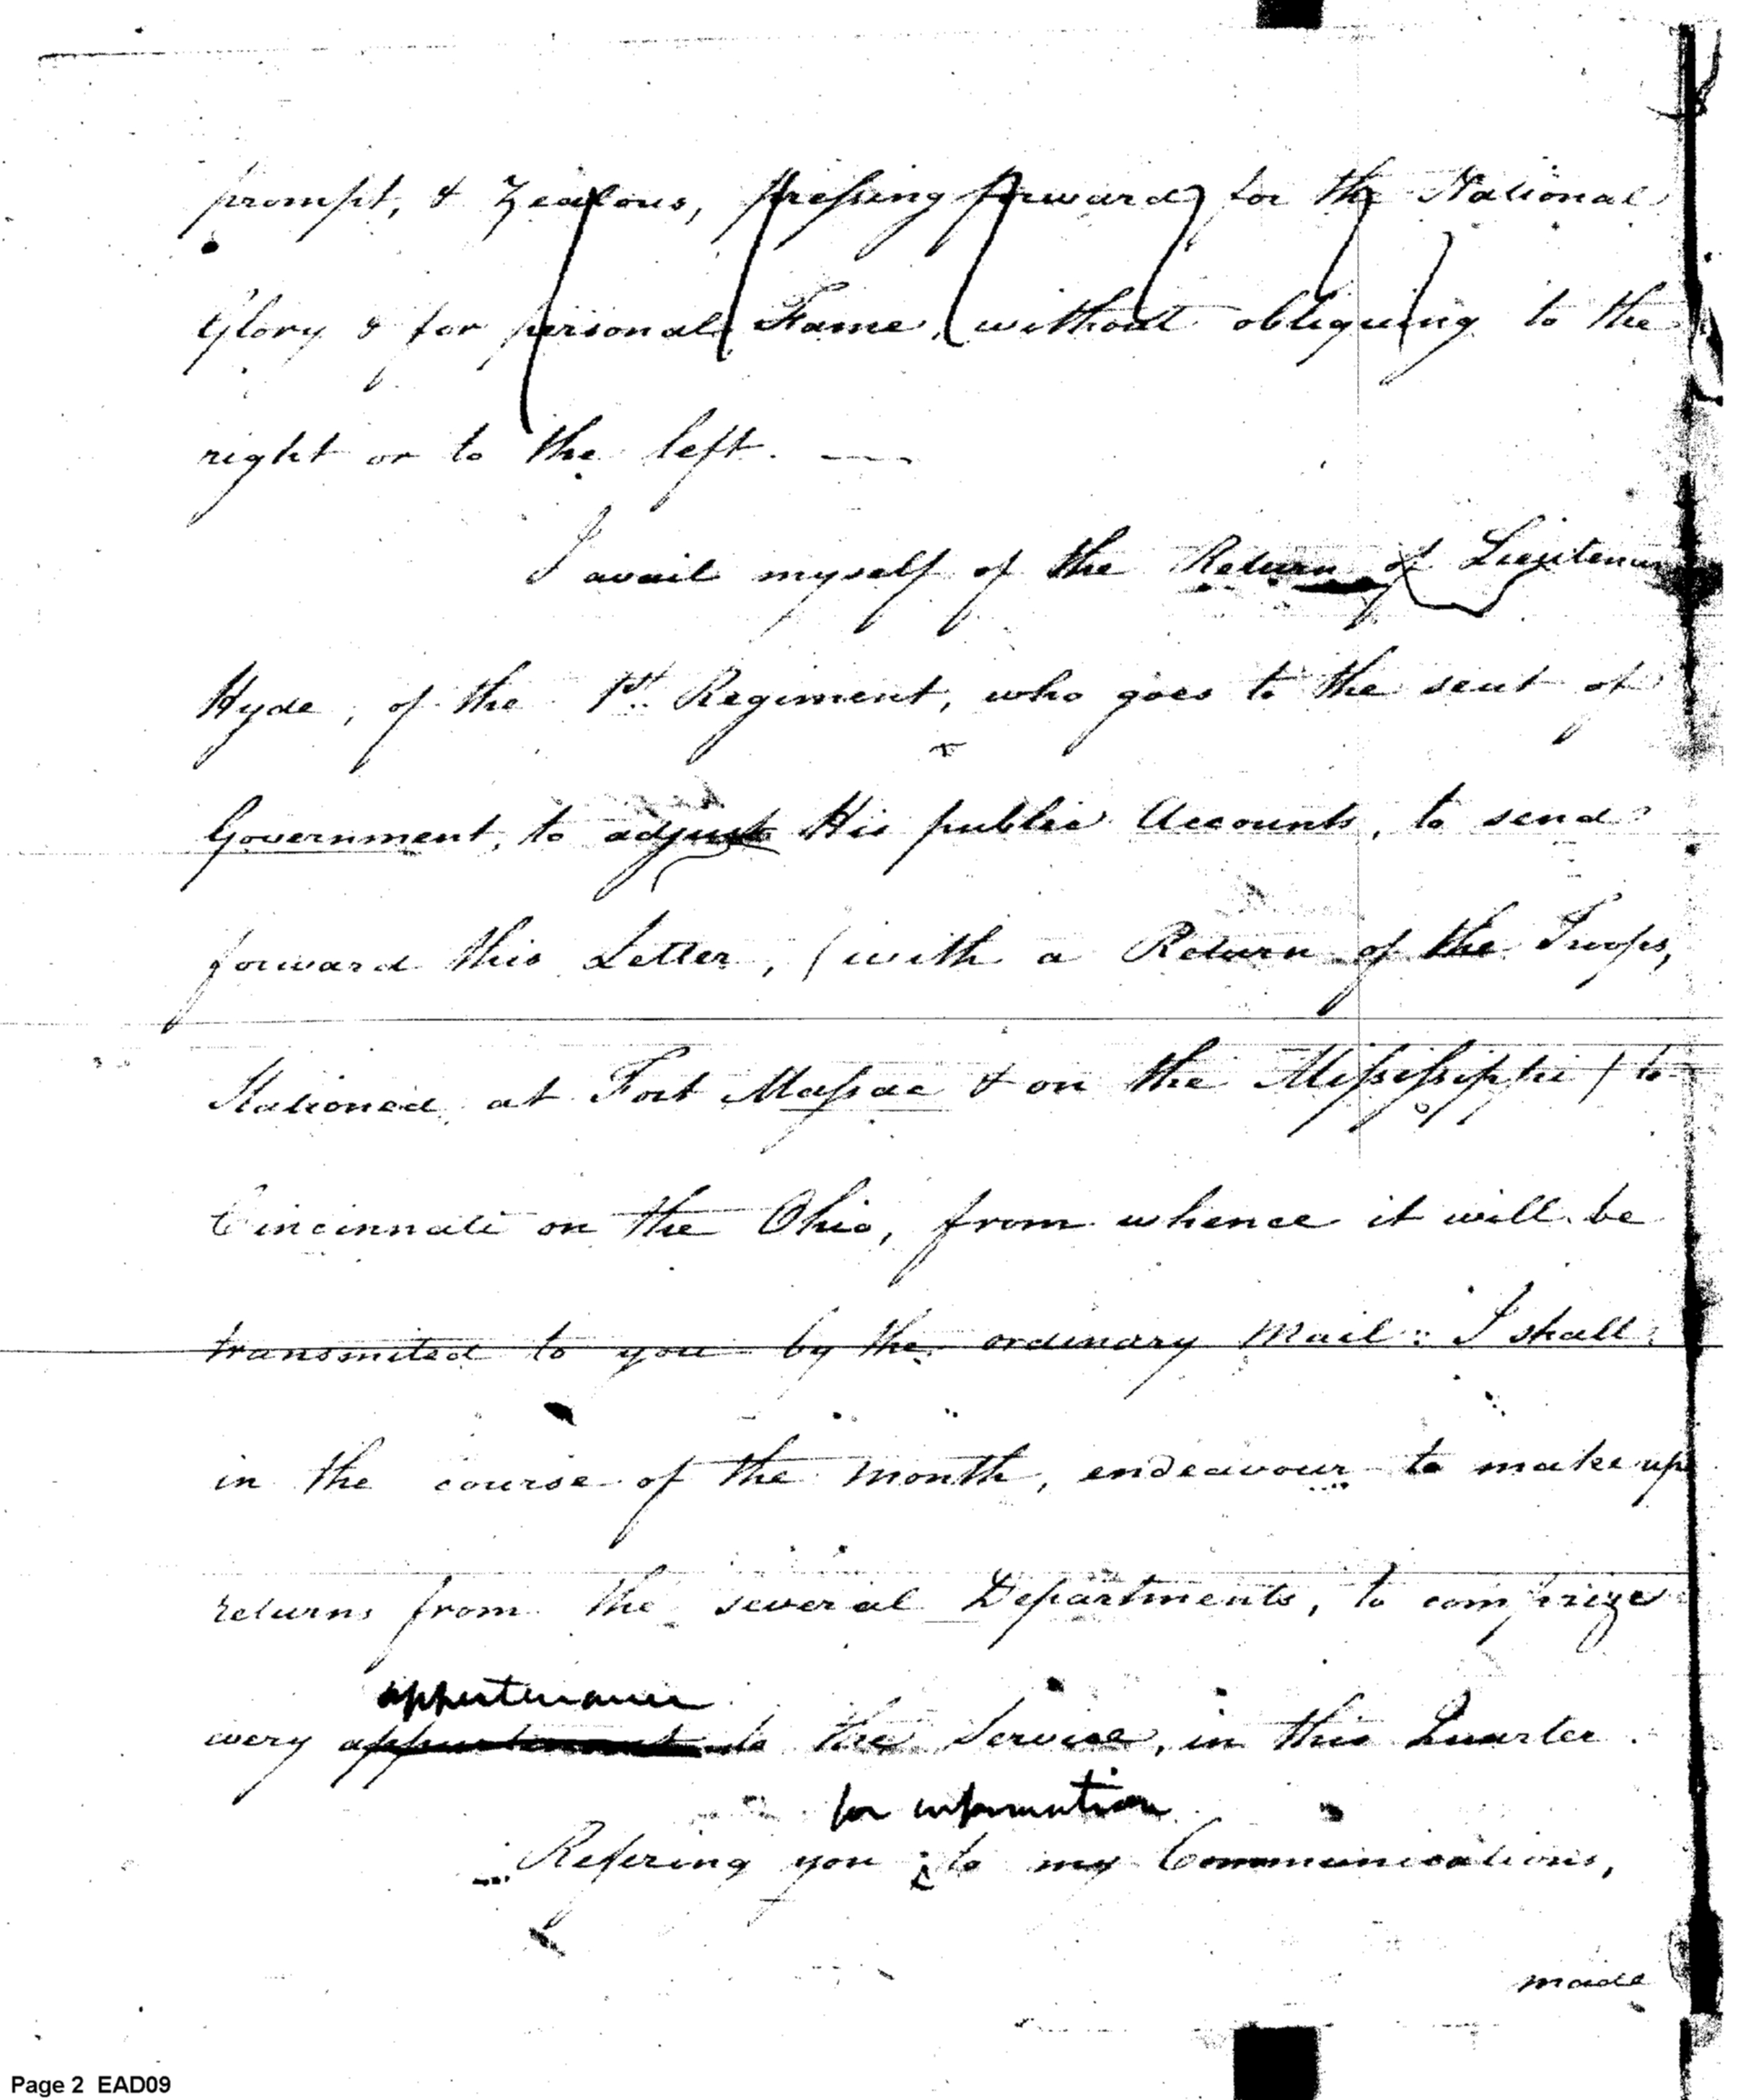 prompt, & Zealous, pressing forward for the National
Glory & for personal Fame, without obliquing to the
right or to the left. —
I avail myself of the Return of Lieutenan
Hyde, of the 1st. Regiment, who goes to the seat of
Government, to adjust His public Accounts, to send
forward this Letter, (with a Return of the Troops,
Stationed at Fort Massac & on the Missisippi) to
Cincinnati on the Ohio, from whence it will be
transmited to you by the ordinary Mail: I shall
in the course of the month, endeavour to make up
returns from the several Departments, to comprize
appertenance
every to the Service, in this Quarter.
for information
Refering you to my Communications,
made
Page 2 EAD09